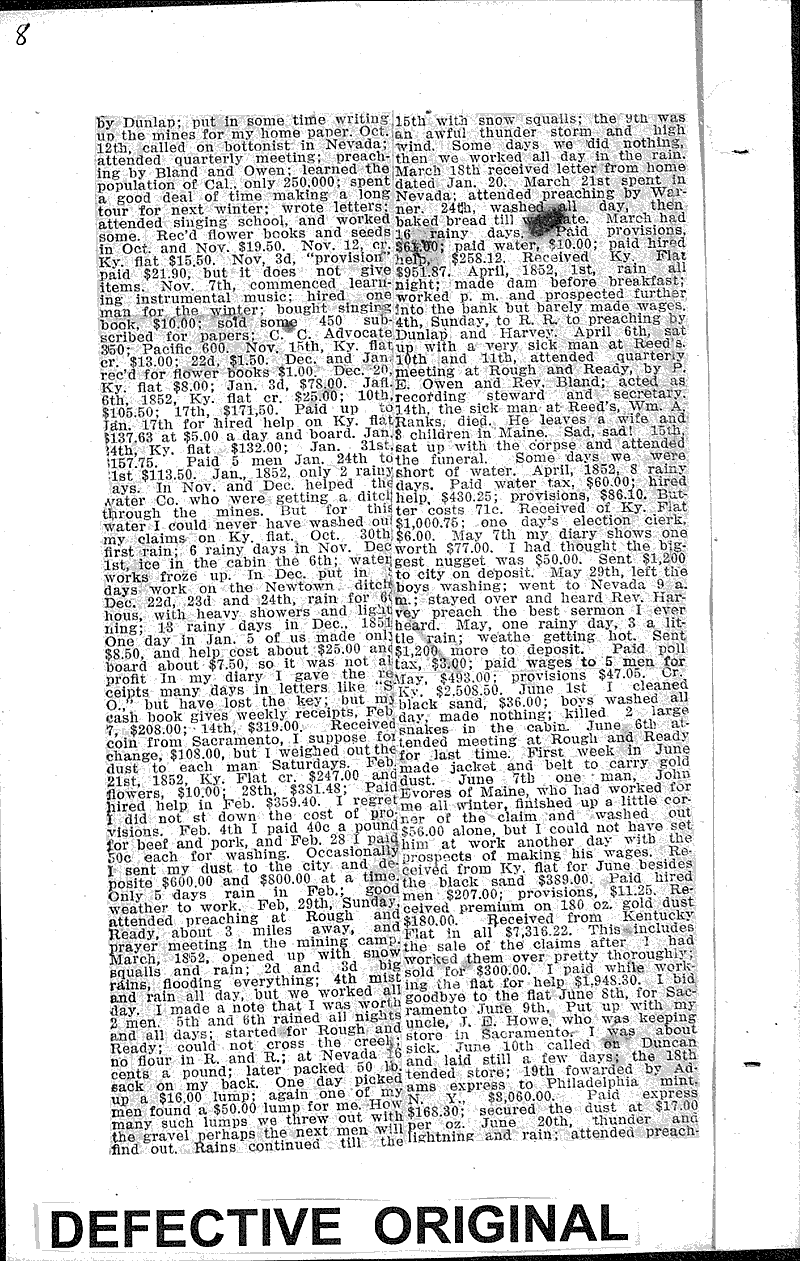 8
by Dunlap; put in some time writing
up the mines for my home paper. Oct.
12th, called on bottonist in Nevada;
attended quarterly meeting; preach-
ing by Bland and Owen; learned the
population of Cal., only 250,000; spent
a good deal of time making a long
tour for next winter; wrote letters;
attended singing school, and worked
some. Rec'd flower books and seeds
in Oct. and Nov. $19.50. Nov. 12, cr.
Ky. flat $15.50. Nov, 3d, "provision"
paid $21.90, but it does not give
items. Nov. 7th, commenced learn-
ing instrumental music; hired one
man for the winter; bought singing
book, $10.00; sold some 450 sub-
scribed for papers; C. C. Advocate
350; Pacific 600. Nov. 15th, Ky. flat
cr. $13.00; 22d, $1.50. Dec. and Jan.
rec'd for flower books $1.00. Dec. 20,
Ky. flat $8.00; Jan. 3d, $78.00. Jan.
6th, 1852, Ky. flat cr. $25.00; 10th,
$105.50; 17th, $171,50. Paid up to
Jan. 17th for hired help on Ky. flat
$137.63 at $5.00 a day and board. Jan.
24th, Ky. flat $132.00; Jan. 31st,
$157.75. Paid 5 men Jan. 24th to
1st $113.50. Jan., 1852, only 2 rainy
ays. In Nov. and Dec. helped the
water Co. who were getting a ditch
through the mines. But for this
water I could never have washed out
my claims on Ky. flat. Oct. 30th
first rain; 6 rainy days in Nov. Dec
1st, ice in the cabin the 6th; water
works froze up. In Dec. put in
days work on the Newtown ditch
Dec. 22d, 23d and 24th, rain for 6
hous, with heavy showers and light
ning; 13 rainy days in Dec., 1851
One day in Jan. 5 of us made only
$8.50, and help cost about $25.00 and
board about $7.50, so it was not al
profit In my diary I gave the re
ceipts many days in letters like "S
O.," but have lost the key; but my
cash book gives weekly receipts, Feb
7, $208.00; 14th, $319.00. Received
coin from Sacramento, I suppose for
change, $108.00, but I weighed out the
dust to each man Saturdays. Feb.
21st, 1852, Ky. Flat cr. $247.00 and
flowers, $10.00; 28th, $381.48; Paid
hired help in Feb. $359.40. I regret
I did not st down the cost of pro-
visions. Feb. 4th I paid 40c a pound
for beef and pork, and Feb. 28 I paid
50c each for washing. Occasionally
I sent my dust to the city and de-
posite $600.00 and $800.00 at a time.
Only 5 days rain in Feb.; good
weather to work. Feb, 29th, Sunday,
attended preaching at Rough and
Ready, about 3 miles away, and
prayer meeting in the mining camp.
March, 1852, opened up with snow
squalls and rain; 2d and 3d big
rains, flooding everything; 4th mist
and rain all day, but we worked all
day. I made a note that I was worth
2 men. 5th and 6th rained all nights
and all days; started for Rough and
Ready; could not cross the creel;
no flour in R. and R.; at Nevada 16
cents a pound; later packed 50 lb.
sack on my back. One day picked
up a $16.00 lump; again one of my
men found a $50.00 lump for me. How
many such lumps we threw out with
the gravel perhaps the next men will
find out. Rains continued till the
15th with snow squalls; the 9th was
an awful thunder storm and high
wind. Some days we did nothing,
then we worked all day in the rain.
March 18th received letter from home
dated Jan. 20. March 21st spent in
Nevada; attended preaching by War-
ner. 24th, washed all day, then
baked bread till late. March had
16 rainy days. Paid provisions,
paid water, $10.00; paid hired
help, $258.12. Received Ky. Flat
$951.87. April, 1852, 1st, rain all
night; made dam before breakfast;
worked p. m. and prospected further
into the bank but barely made wages.
4th, Sunday, to R. R. to preaching by
Dunlap and Harvey. April 6th, sat
up with a very sick man at Reed's.
10th and 11th, attended quarterly
meeting at Rough and Ready, by P.
E. Owen and Rev. Bland; acted as
recording steward and secretary.
14th, the sick man at Reed's, Wm. A.
Ranks, died. He leaves a wife and
8 children in Maine. Sad, sad! 15th,
sat up with the corpse and attended
the funeral. Some days we were
short of water. April, 1852, 8 rainy
days. Paid water tax, $60.00; hired
help, $430.25; provisions, $86.10. But-
ter costs 71c. Received of Ky. Flat
$1,000.75; one day's election clerk,
$6.00. May 7th my diary shows one
worth $77.00. I had thought the big-
gest nugget was $50.00. Sent $1,200
to city on deposit. May 29th, left the
boys washing; went to Nevada 9 a.
m.; stayed over and heard Rev. Har-
vey preach the best sermon I ever
heard. May, one rainy day, 3 a lit-
tle rain; weathe getting hot. Sent
$1,200 more to deposit. Paid poll
tax, $3.00; paid wages to 5 men for
May, $493.00; provisions $47.05. Cr.
Ky. $2.508.50. June 1st I cleaned
black sand, $36.00; boys washed all
day, made nothing; killed 2 large
snakes in the cabin. June 6th at-
tended meeting at Rough and Ready
for last time. First week in June
made jacket and belt to carry gold
dust. June 7th one man, John
Evores of Maine, who had worked for
me all winter, finished up a little cor-
ner of the claim and washed out
$56.00 alone, but I could not have set
him at work another day with the
prospects of making his wages. Re-
ceived from Ky. flat for June besides
the black sand $389.00. Paid hired
men $207.00; provisions, $11.25. Re-
ceived premium on 180 oz. gold dust
$180.00. Received from Kentucky
Flat in all $7,316.22. This includes
the sale of the claims after I had
worked them over pretty thoroughly;
sold for $300.00. I paid while work-
ing the flat for help $1,948.30. I bid
goodbye to the flat June 8th, for Sac-
ramento June 9th. Put up with my
uncle, J. E. Howe, who was keeping
store in Sacramento. I was about
sick. June 10th called on Duncan
and laid still a few days; the 18th
tended store; 19th fowarded by Ad-
ams express to Philadelphia mint,
N. Y., $8,060.00. Paid express
$168.30; secured the dust at $17.00
per oz. June 20th, thunder and
lightning and rain; attended preach-
DEFECTIVE ORIGINAL